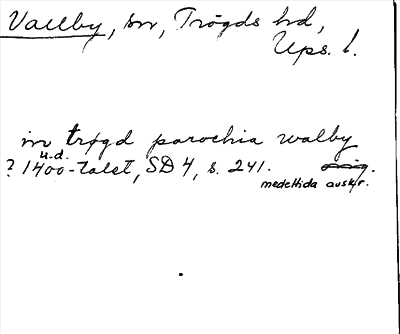 Vallby, sn, Trögds hd,
Ups. l.
in trøgd parochia walby
u.d.
? 1400-talet, SD 4, s. 241. orig.
medeltida avskr.